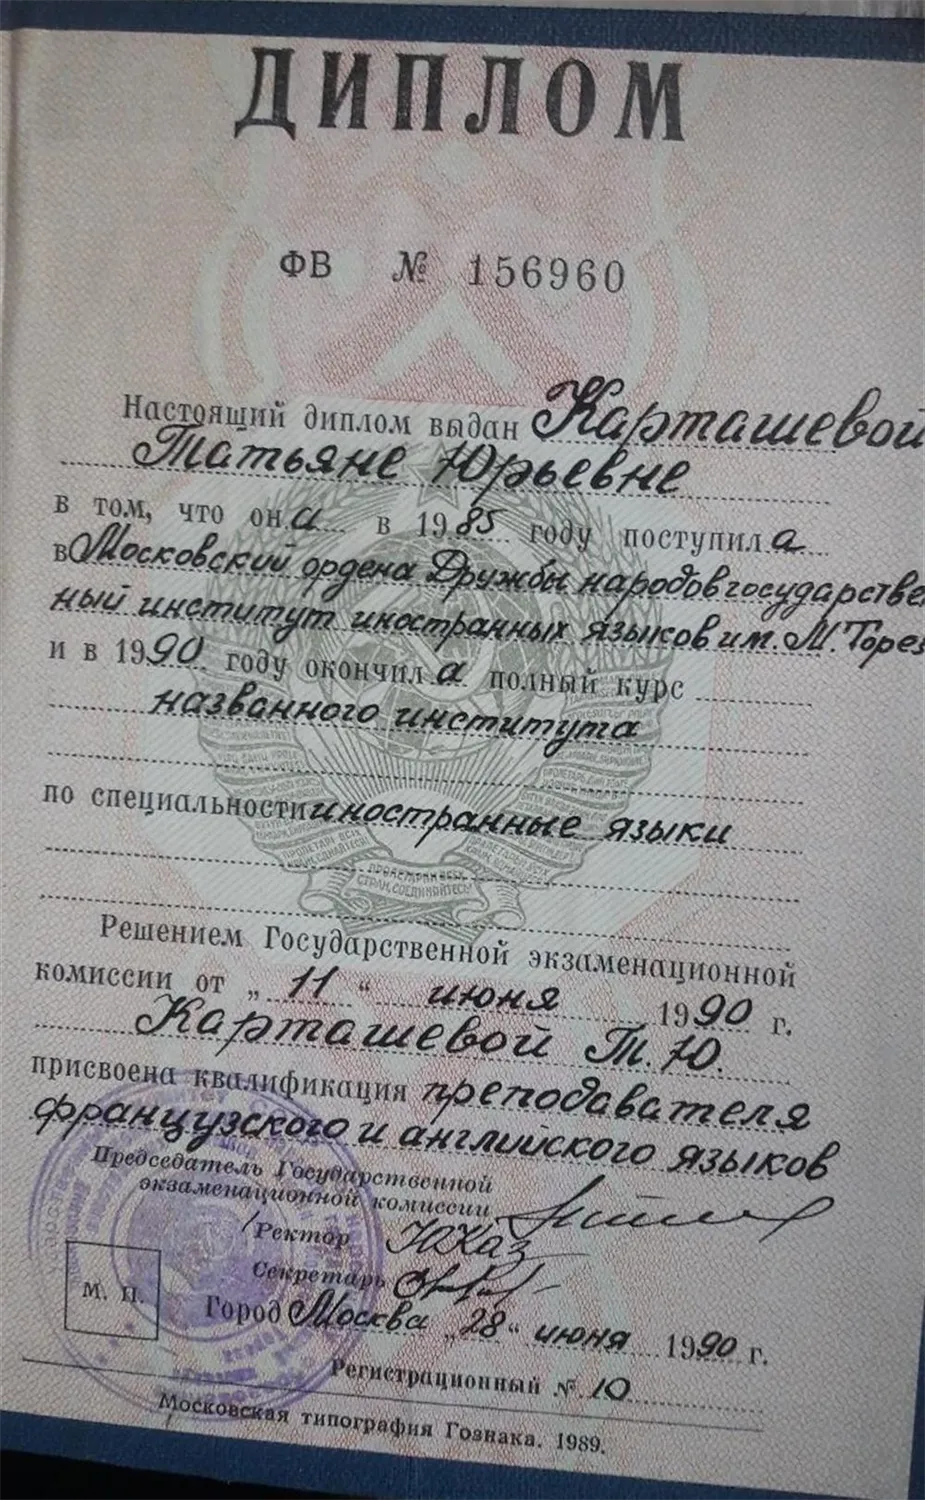 ДИПЛОМ
ФВ № 156960
Настоящий диплом выдан Карташевой
Татьяне Юрьевне
в том, что она в 1985 году поступила
в Московский ордена Дружбы народов государствен
ный институт иностранных языков им. М. Торез
и в 1990 году окончила полный курс
названного института
по специальности иностранные языки
ПРОЛЕТАРИИ ВСЕХ
СТРАН, СОЕДИНЯЙТЕСЬ!
Решением Государственной экзаменационной
комиссии от „11“ июня 1990 г.
Карташевой Т. Ю.
присвоена квалификация преподавателя
французского и английского языков
Председатель Государственной
экзаменационной комиссии
Ректор
Секретарь
М. П.
Город Москва „28“ июня 1990 г.
Регистрационный № 10
Московская типография Гознака. 1989.